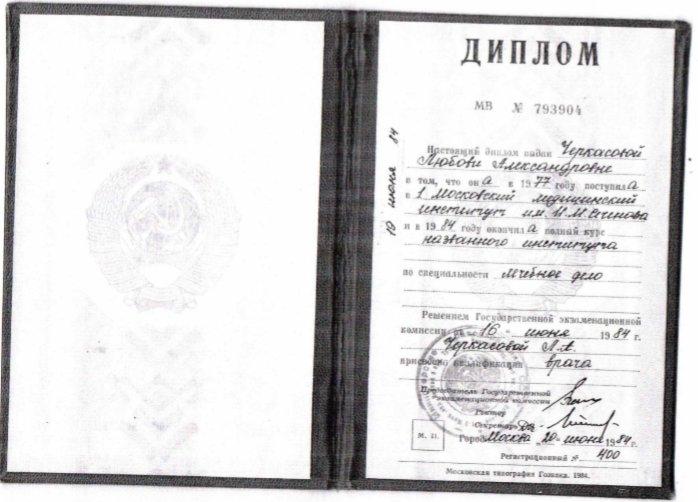 ДИПЛОМ
МВ № 793904
Настоящий диплом выдан Черкасовой
Любови Александровне
в том, что она в 1977 году поступила
в 1 Московский медицинский
институт им. И.М. Сеченова
и в 1984 году окончила полный курс
названного института
по специальности лечебное дело
Решением Государственной экзаменационной
комиссии от «16» июня 1984 г.
Черкасовой Л.А.
присвоена квалификация врача
Председатель Государственной
экзаменационной комиссии
Ректор
Секретарь
М. П.
Город Москва „20“ июня 1984 г.
Регистрационный № 400
Московская типография Гознака. 1984.
19 июня 84